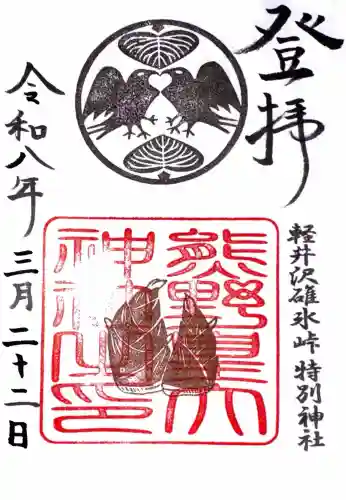 登拝
軽井沢碓氷峠特別神社
熊野皇大
神社之印
令和八年
三月二十二日